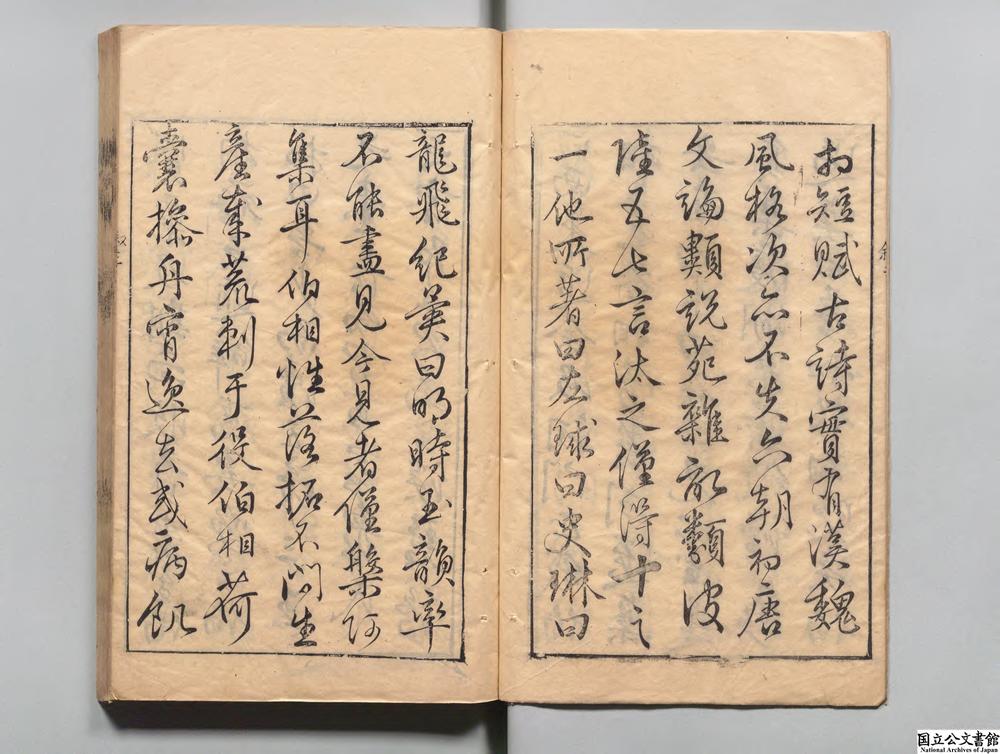 如短賦古詩實有漢魏
風格次亦不失六朝初唐
文論類說苑雜記類皮
陸五七言汰之僅得十之
一他所著曰左球曰史琳曰
龍飛紀異曰明時玉韻率
不能盡見今見者僅槃阿
集耳伯相性落拓不問生
產歲荒刺于役伯相荷
囊操舟宵逸去或病飢
国立公文書館
National Archives of Japan